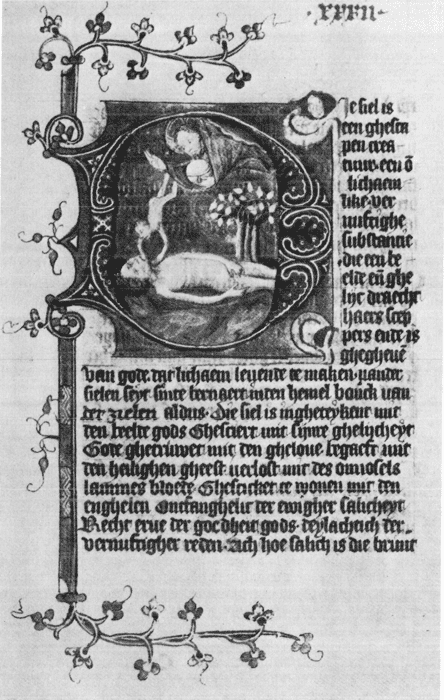 ·xxxii·
Ie siel is
een ghesca
pen crea
tuur een ō
lichaem
like ver
nuftighe
substancie
die een be
elde eñ ghe
lijc draecht
haers scep
pers ende is
ghegheuē
van gode dat lichaem leuende te maken. vander
sielen seyt sinte bernaert inden hemel bouck van
der zielen aldus. Die siel is inghetekent mit
den beelde gods Ghesciert mit sijnre ghelijcheyt
Gode ghetruwet mit den gheloue begaeft mit
den heilighen gheest verlost mit des onnosels
lammes bloede Ghescicket te wonen mit den
enghelen Ontfanghelic der ewigher salicheyt
Recht erue der goedheit gods. deylachtich der
vernuftigher reden. Sich hoe salich is die bruut